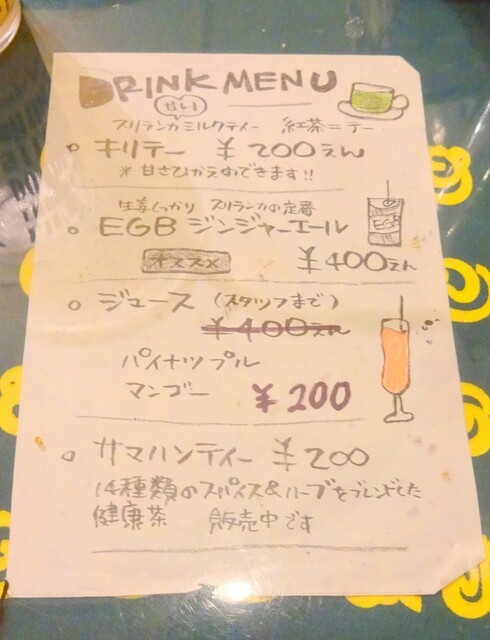 DRINK MENU
甘い
スリランカミルクティー 紅茶=テー
キリテー ¥200えん
※甘さひかえめできます!!
生姜しっかり スリランカの定番
EGB ジンジャーエール
EGB
オススメ ¥400えん
ジュース (スタッフまで)
¥400えん
パイナップル
マンゴー ¥200
サマハンティー ¥200
14種類のスパイス&ハーブをブレンドした
健康茶 販売中です